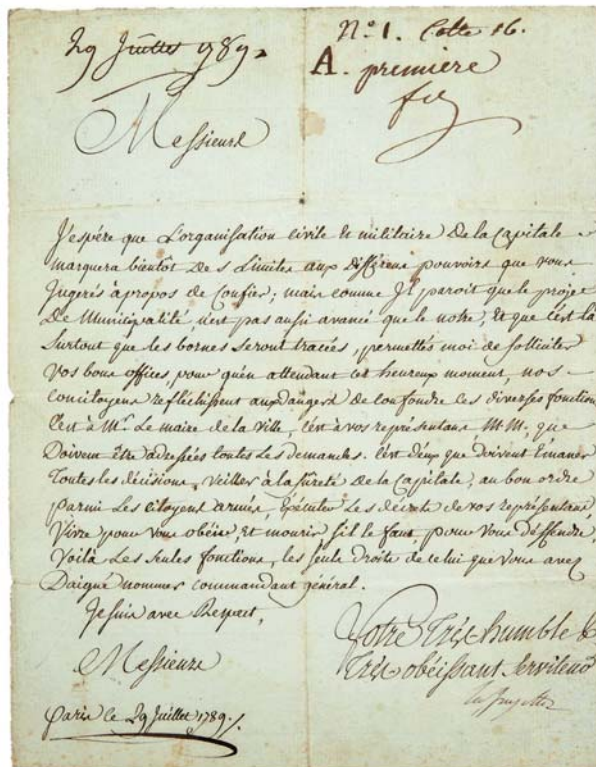 29 Juillet 1789.
N.º 1. Cotte 16.
A. premiere
Messieurs
J'espére que L'organisation civile et militaire De la Capitale
marquera bientôt Des Limites aux differens pouvoirs que vous
Jugerés àpropos de Confier; mais comme Il paroit que le projet
De Municipalité, n'est pas aussi avancé que le notre, et que C'est là
Surtout que les bornes Seront tracées, permettés moi de solliciter
Vos bons offices, pour qu'en attendant cet heureux moment, nos
concitoyens reflêchissent aux dangers de confondre ces diverses fonctions
C'est à M.r Le maire de la Ville, c'est à vos representans M.M. que
Doivent être adressées toutes Les demandes. C'est d'eux que doivent Emaner
Toutes les décisions, Veiller à la sûreté de la Capitale, au bon ordre
parmi Les citoyens armés, Exécuter Les décrets de vos représentans,
Vivre pour vous obéir, Et mourir s'il le faut, pour Vous déffendre,
Voilà Les seules fonctions, les seuls Droits de celui que Vous avez
Daigné nommer commandant général.
Je suis avec Respect,
Messieurs
Votre Très humble &
Très obéissant Serviteur
Lafayette
Paris le 29 Juillet 1789.